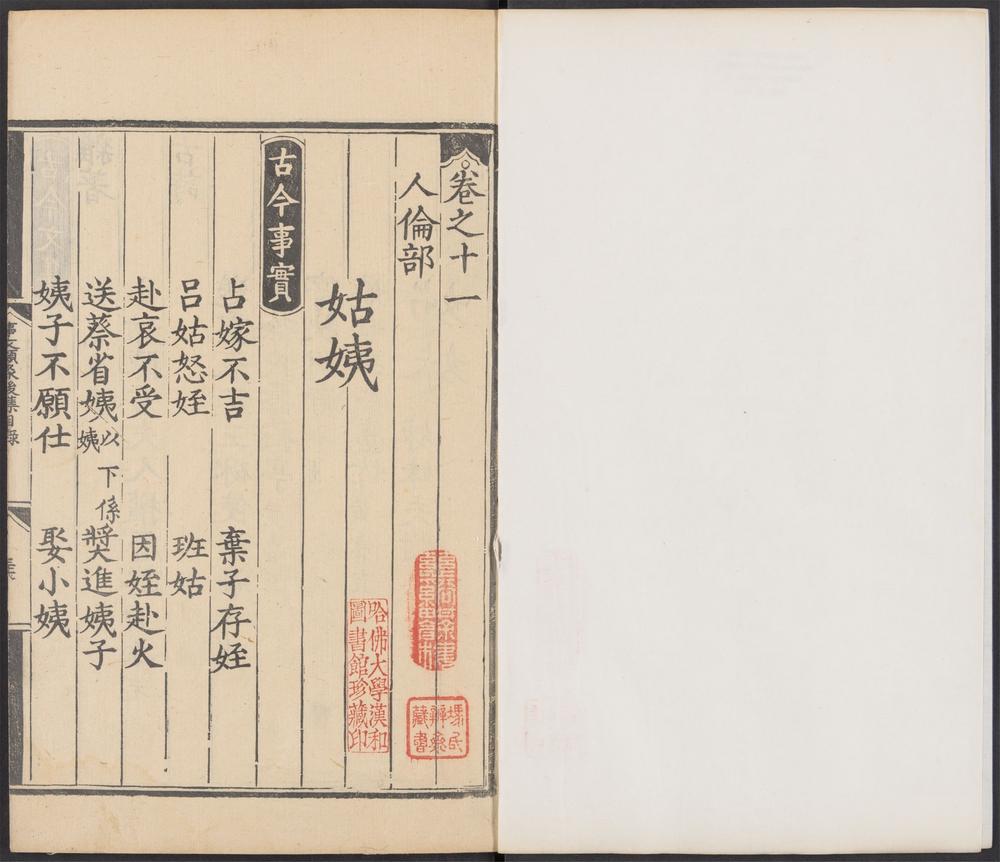 卷之十一
人倫部
姑姨
古今事實
占嫁不吉
棄子存姪
呂姑怒姪
班姑
赴哀不受
因姪赴火
送蔡省姨以下係姨
獎進姨子
姨子不願仕
娶小姨
哈佛大學漢和
圖書館珍藏印
藏書